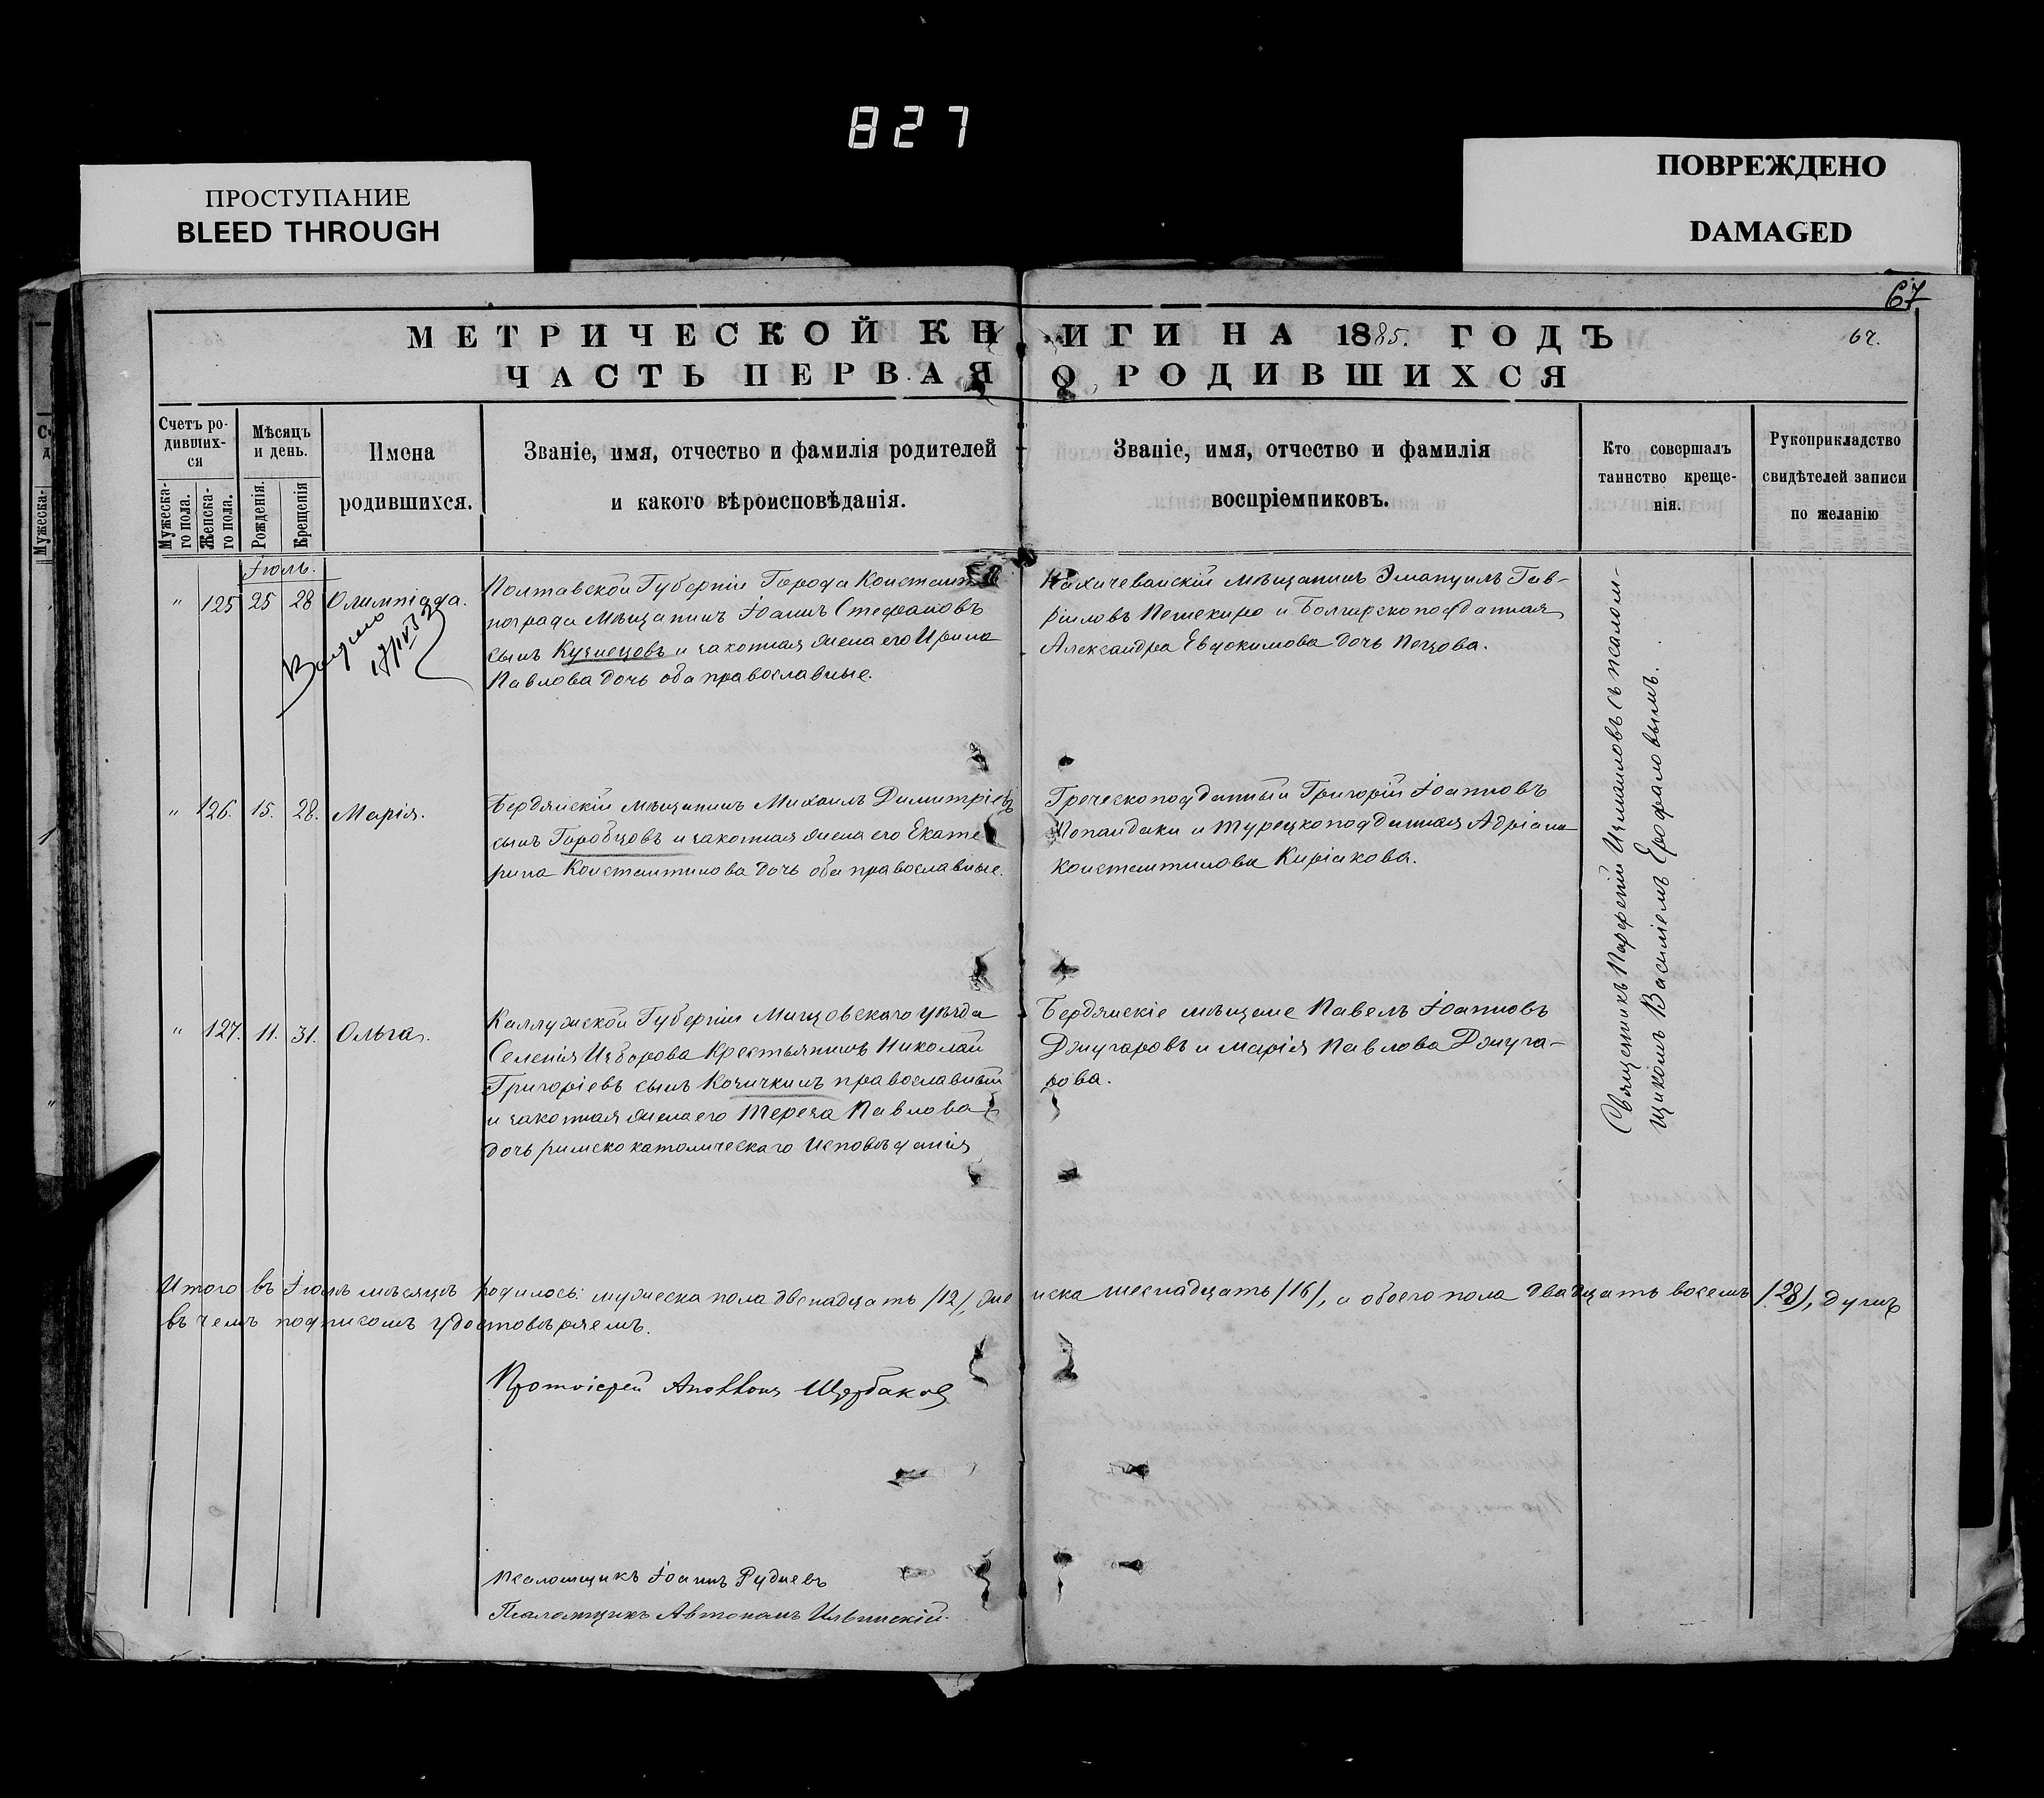 827
ПРОСТУПАНИЕ
BLEED THROUGH
ПОВРЕЖДЕНО
DAMAGED
67
МЕТРИЧЕСКОЙ КНИГИ НА 1885. ГОДЪ
67.
ЧАСТЬ ПЕРВАЯ О РОДИВШИХСЯ
Счетъ ро-
дивших-
ся
Мужеска-
го пола.
Женска-
го пола.
Мѣсяцъ
и день.
Рожденія.
Крещенія
Имена
родившихся.
Званіе, имя, отчество и фамилія родителей
и какого вѣроисповѣданія.
Званіе, имя, отчество и фамилія
воспріемниковъ.
Кто совершалъ
таинство креще-
нія.
Рукоприкладство
свидѣтелей записи
по желанію
Іюль.
" 125 25 28 Олимпіада.
Полтавской Губерніи Города Константи
нограда Мѣщанинъ Іоаннъ Стефановъ
сынъ Кузнецовъ и законная жена его Ирина
Павлова дочь оба православные.
Нахичеванскій мѣщанинъ Эмануилъ Гав-
ріиловъ Пешекиро и Болгарскоподданная
Александра Евдокимова дочь Пецова.
" 126. 15. 28. Марія.
Бердянскій мѣщанинъ Михаилъ Димитріевъ
сынъ Горобцовъ и законная жена его Екате
рина Константинова дочь оба православные.
Греческоподданный Григорій Іоанновъ
Попандаки и турецкоподданная Адріана
Константинова Киріакова.
" 127. 11. 31. Ольга.
Каллужской Губерніи Мищовскаго уѣзда
Селенія Изборова Крестьянинъ Николай
Григоріевъ сынъ Козичкинъ православный
и законная жена его Тереза Павлова
дочь римско католическаго Исповѣданія
Бердянскіе мѣщане Павелъ Іоанновъ
Джугаровъ и Марія Павлова Джуга-
рова.
Священникъ Парфеній Измаиловъ съ псалом-
щикомъ Василіемъ Ерофаловымъ.
Итого въ Іюлѣ мѣсяцѣ родилось: мужеска пола двенадцать /12/, женска шеснадцать /16/, а обоего пола двадцать восемь /28/, душъ
въ чемъ подписомъ удостовѣряемъ.
Протоіерей Аполлонъ Щербаковъ
Псаломщикъ Іоаннъ Рудневъ
Псаломщикъ Автономъ Ильинскій.